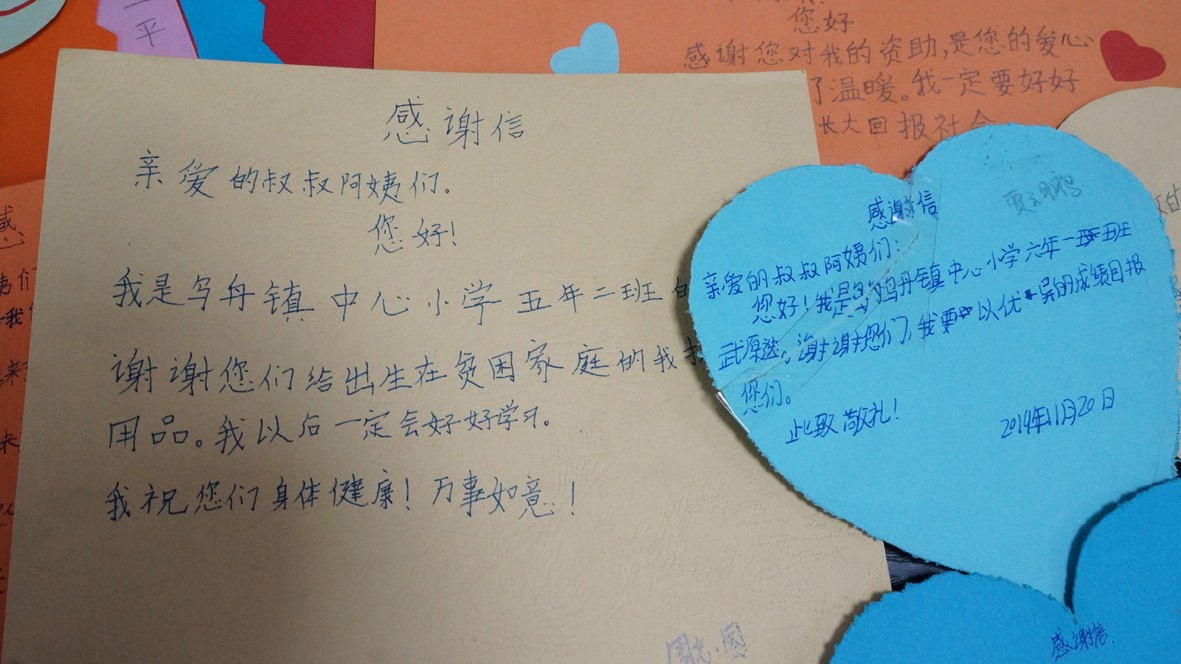 平
您好
感谢您对我的资助,是您的爱心
了温暖。我一定要好好
长大回报社会
感谢信
亲爱的叔叔阿姨们。
您好!
我是乌丹镇中心小学五年二班
谢谢您们给出生在贫困家庭的我
用品。我以后一定会好好学习。
我祝您们身体健康!万事如意!
感谢信
亲爱的叔叔阿姨们:
您好!我是乌丹镇中心小学六年一班
谢谢您们,我要以优异的成绩回报
您们。
此致敬礼!
2014年11月20日
感谢信